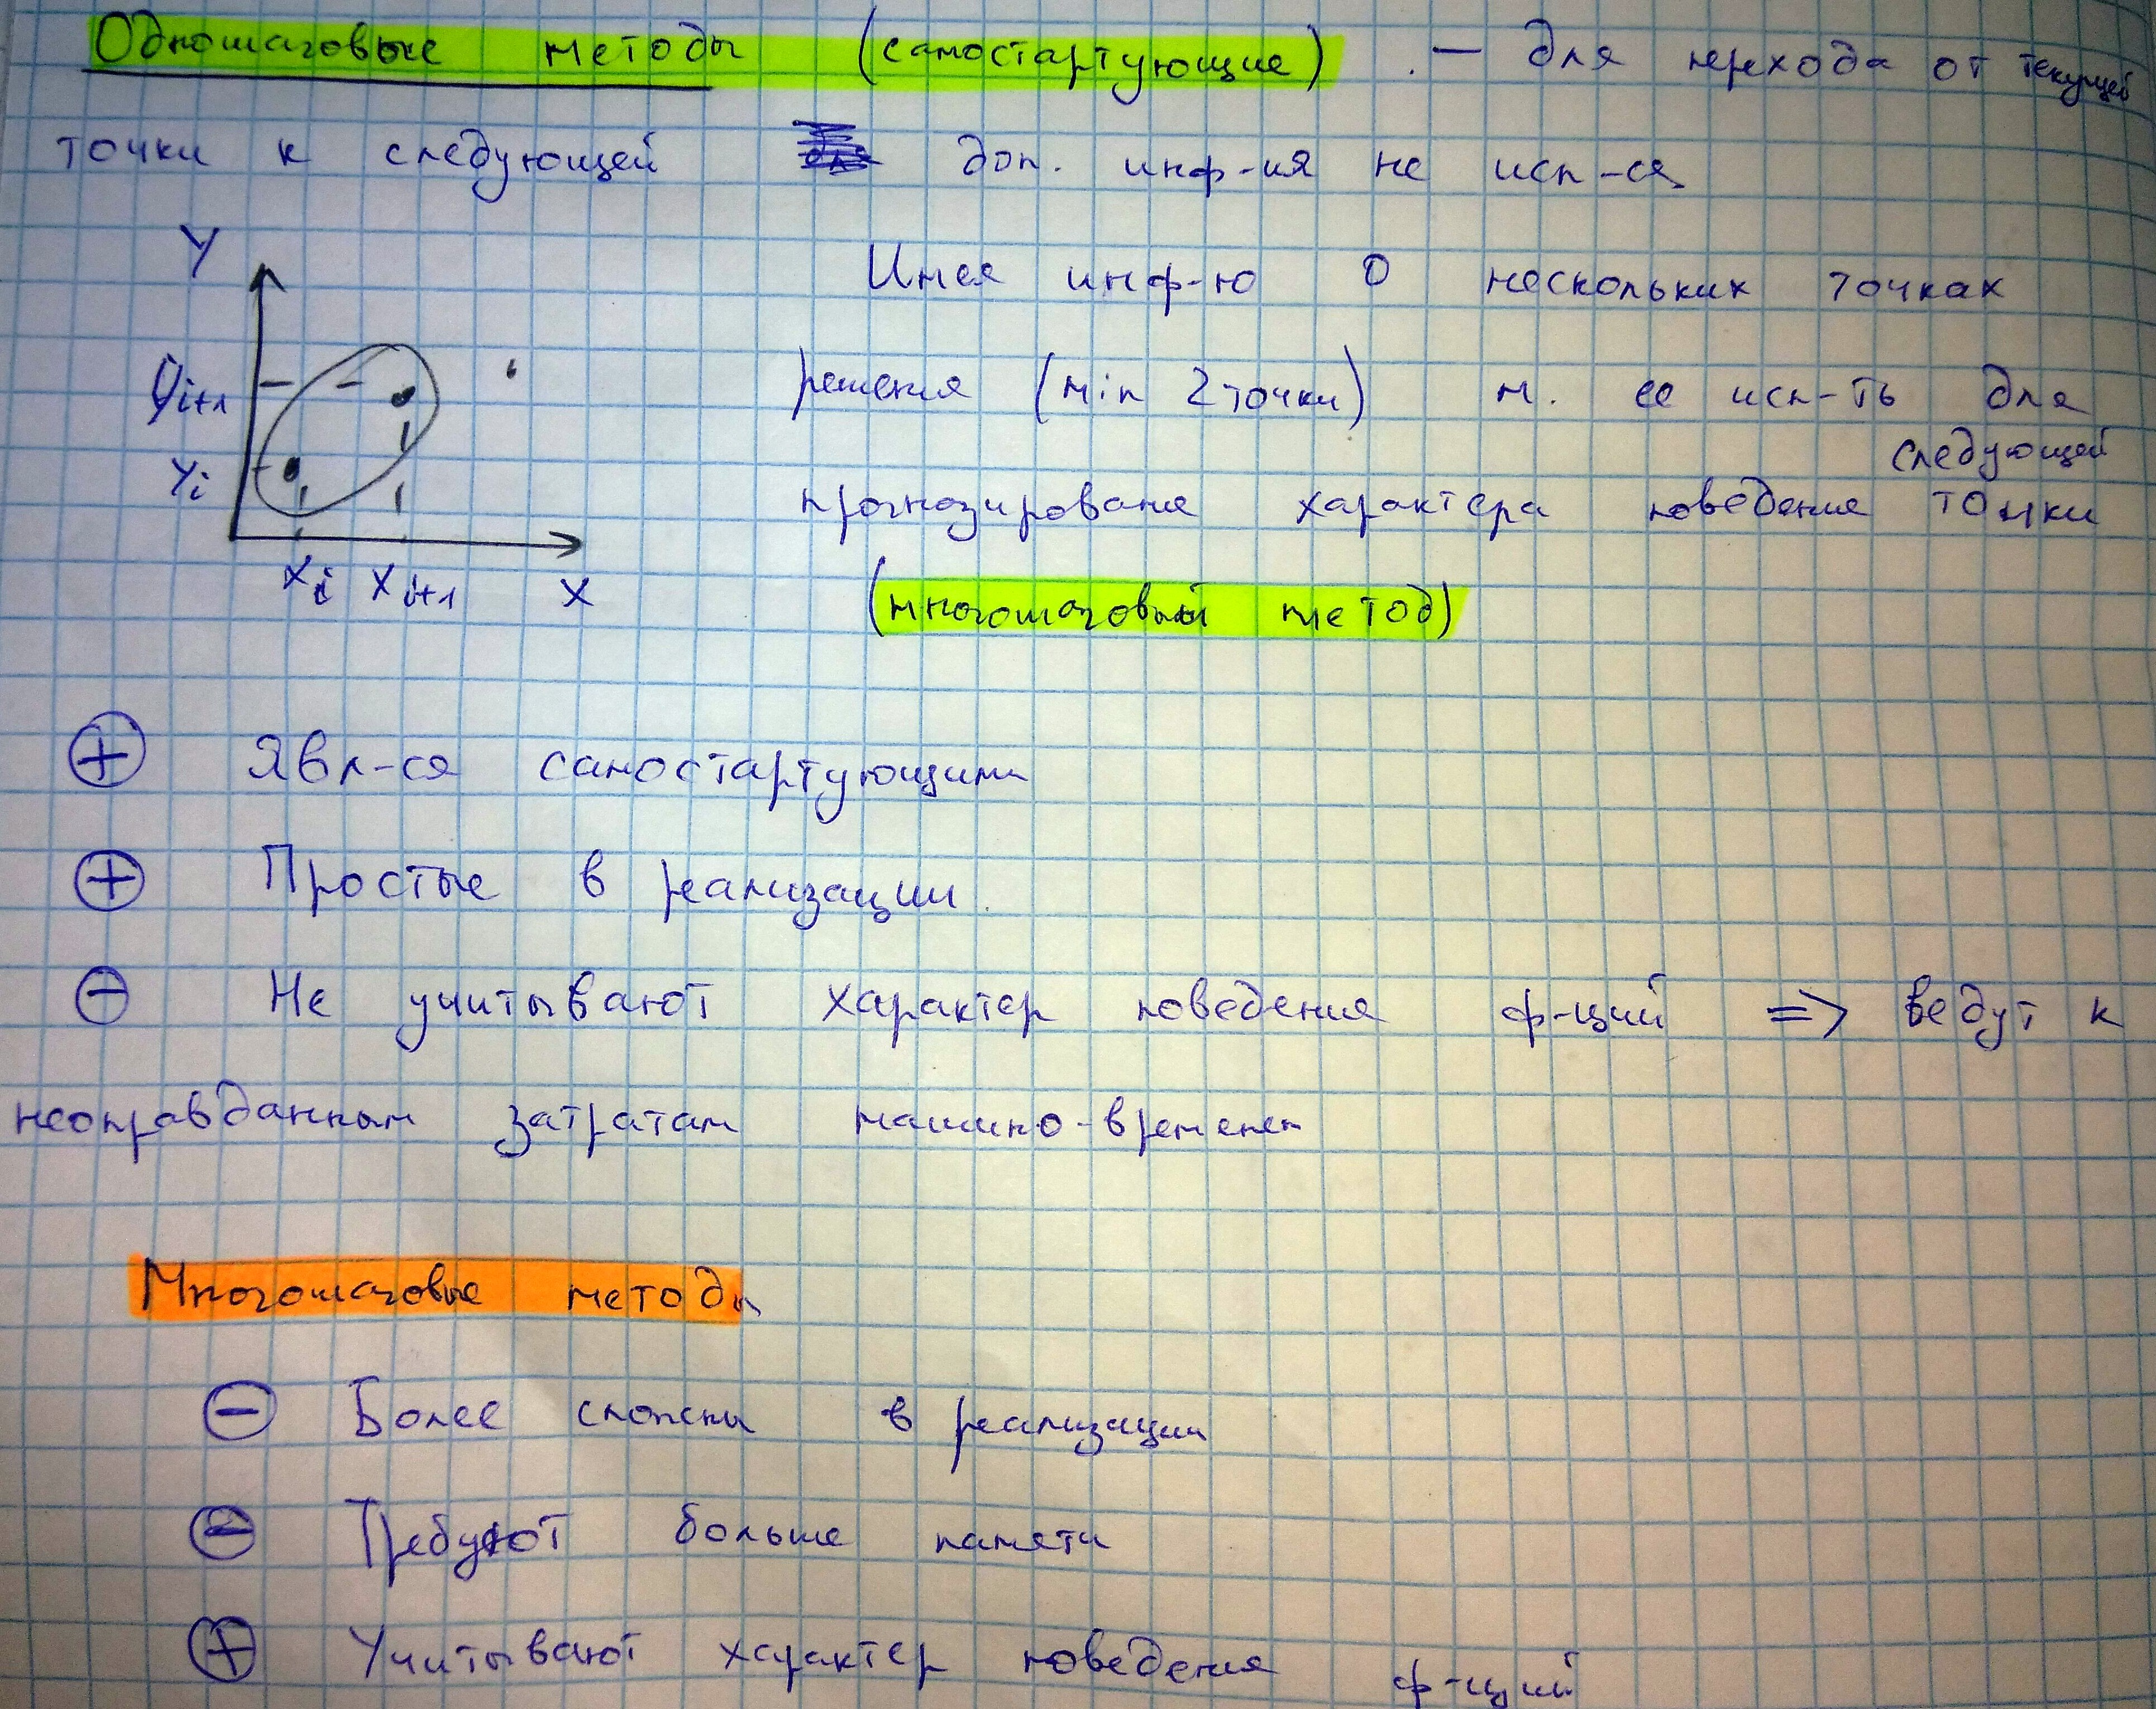 Одношаговые методы (самостартующие) . — для перехода от текущей
точки к следующей доп. инф-ия не исп-ся
Y
Имея инф-ю о нескольких точках
yi+1
решения (min 2 точки) м. ее исп-ть для
yi
следующей
прогнозирования характера поведения точки
xi xi+1 X
(многошаговый метод)
⊕ Явл-ся самостартующими
⊕ Простые в реализации
⊖ Не учитывают характер поведения ф-ций => ведут к
неоправданным затратам машино-времени
Многошаговые методы
⊖ Более сложны в реализации
⊖ Требуют больше памяти
⊕ Учитывают характер поведения ф-ций